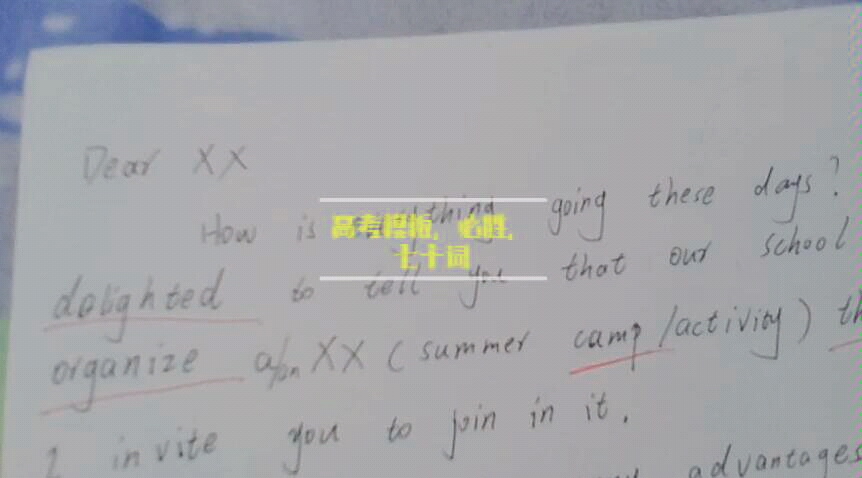 Dear XX
How is everything going these days?
delighted to tell you that our school
organize a/an XX (summer camp/activity) th
I invite you to join in it.
advantages
高考模板，必胜，
七十词